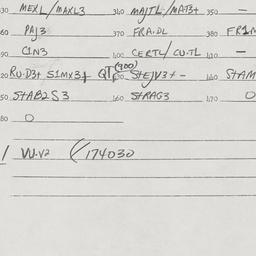 30 MEXL/MAXL3 340 MAJTL/MAT3+ 350 —
60 PAJ3 370 FRA.DL 380 FR1M
90 CIN3 400 CERTL/CU.TL 10 —
20 RU.D3+ SIMX3+ QT(900) 30 STEJV3+ – 440 STAM
50 STAB2S3 460 STRAG3 470 0
80 0
/ VU.V2 174030